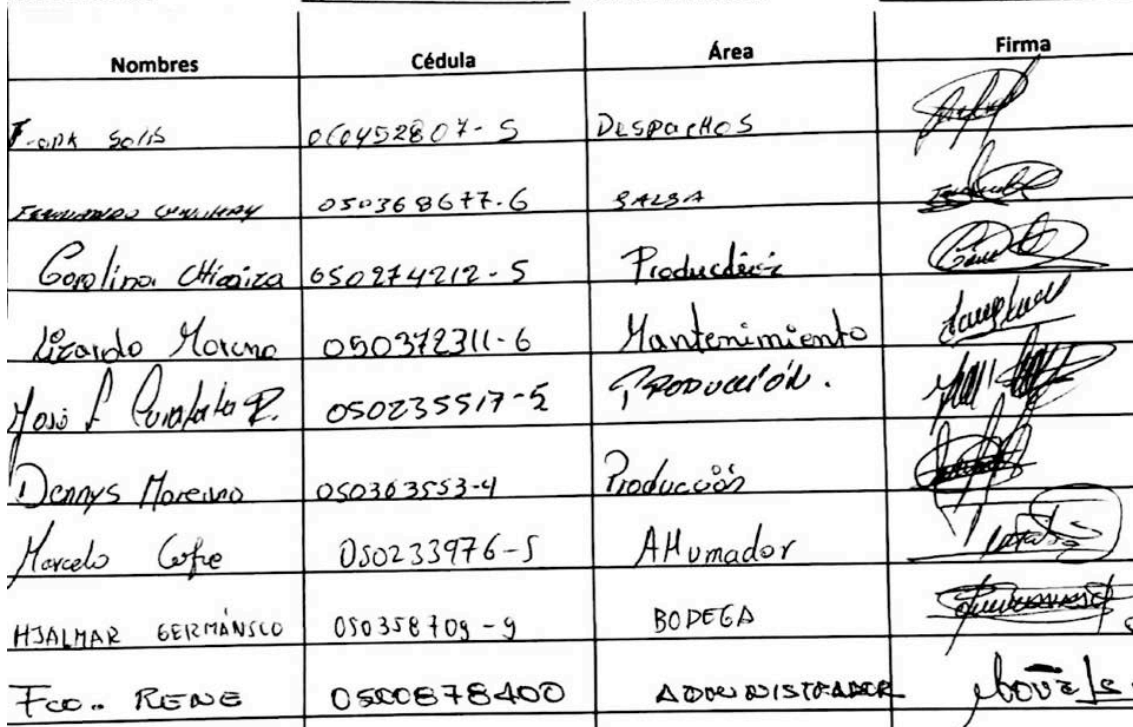 Nombres Cédula Área Firma
Frank Solis 060452807-5 DESPACHOS
FERNANDO 050368677-6 SALSA
Carolina Chicaiza 050274212-5 Producción
Lizardo Moreno 050372311-6 Mantenimiento
José L P. 050235517-5 PRODUCCIÓN.
Dennys Moreno 050363553-4 Producción
Marcelo Cofre 050233976-5 AHumador
HJALMAR GERMÁNSCO 050358709-9 BODEGA
Fco.. RENE 0500878400 ADMINISTRADOR